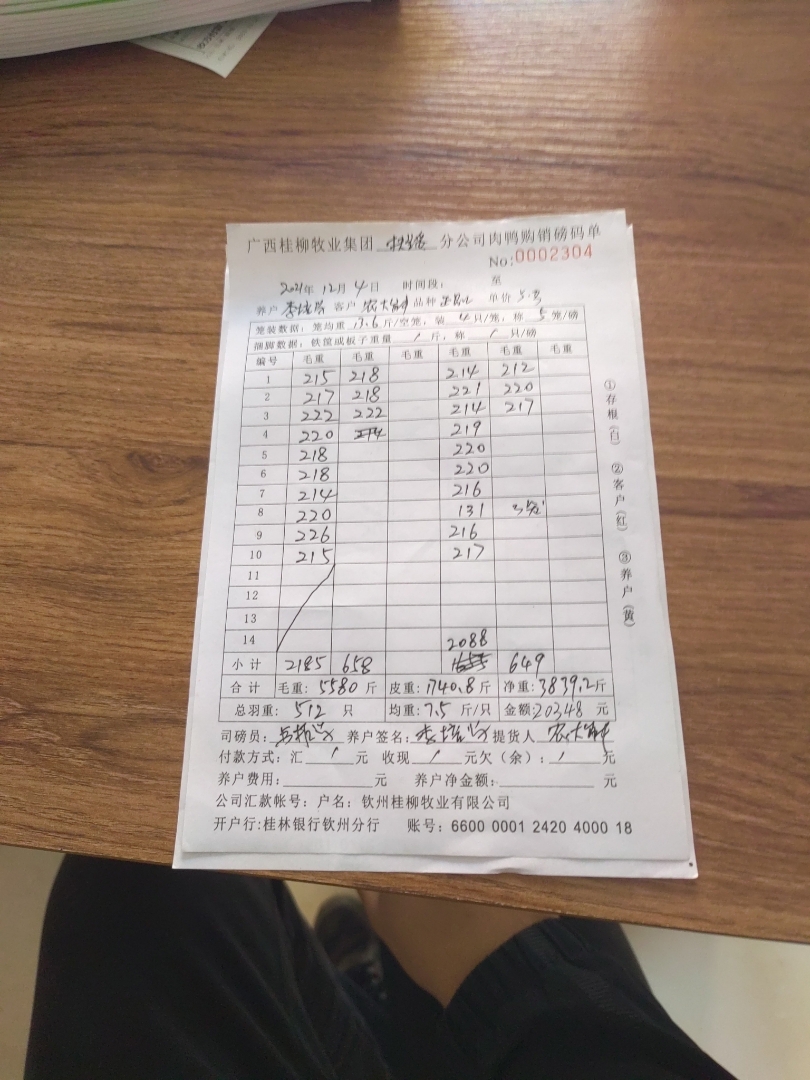 广西桂柳牧业集团 分公司肉鸭购销磅码单
No:0002304
2021年12月4日 时间段: 至
养户 李培兴 客户 农大 品种 单价 5.3
笼装数据:笼均重 13.6 斤/空笼,装 4 只/笼,称 5 笼/磅
捆脚数据:铁筐或板子重量 / 斤,称 / 只/磅
编号 毛重 毛重 毛重 毛重 毛重 毛重
1 215 218 214 212
2 217 218 221 220
3 222 222 214 217
4 220 214 219
5 218 220
6 218 220
7 214 216
8 220 131
9 226 216
10 215 217
11
12
13
14 2088
小计 2185 658 649
合计 毛重:5580斤 皮重:1740.8斤 净重:3839.2斤
总羽重:512只 均重:7.5斤/只 金额:20348元
司磅员: 养户签名:李培兴 提货人 农大
付款方式:汇 / 元 收现 / 元欠(余): / 元
养户费用: 元 养户净金额: 元
公司汇款帐号:户名:钦州桂柳牧业有限公司
开户行:桂林银行钦州分行 账号:6600 0001 2420 4000 18
①存根(白) ②客户(红) ③养户(黄)